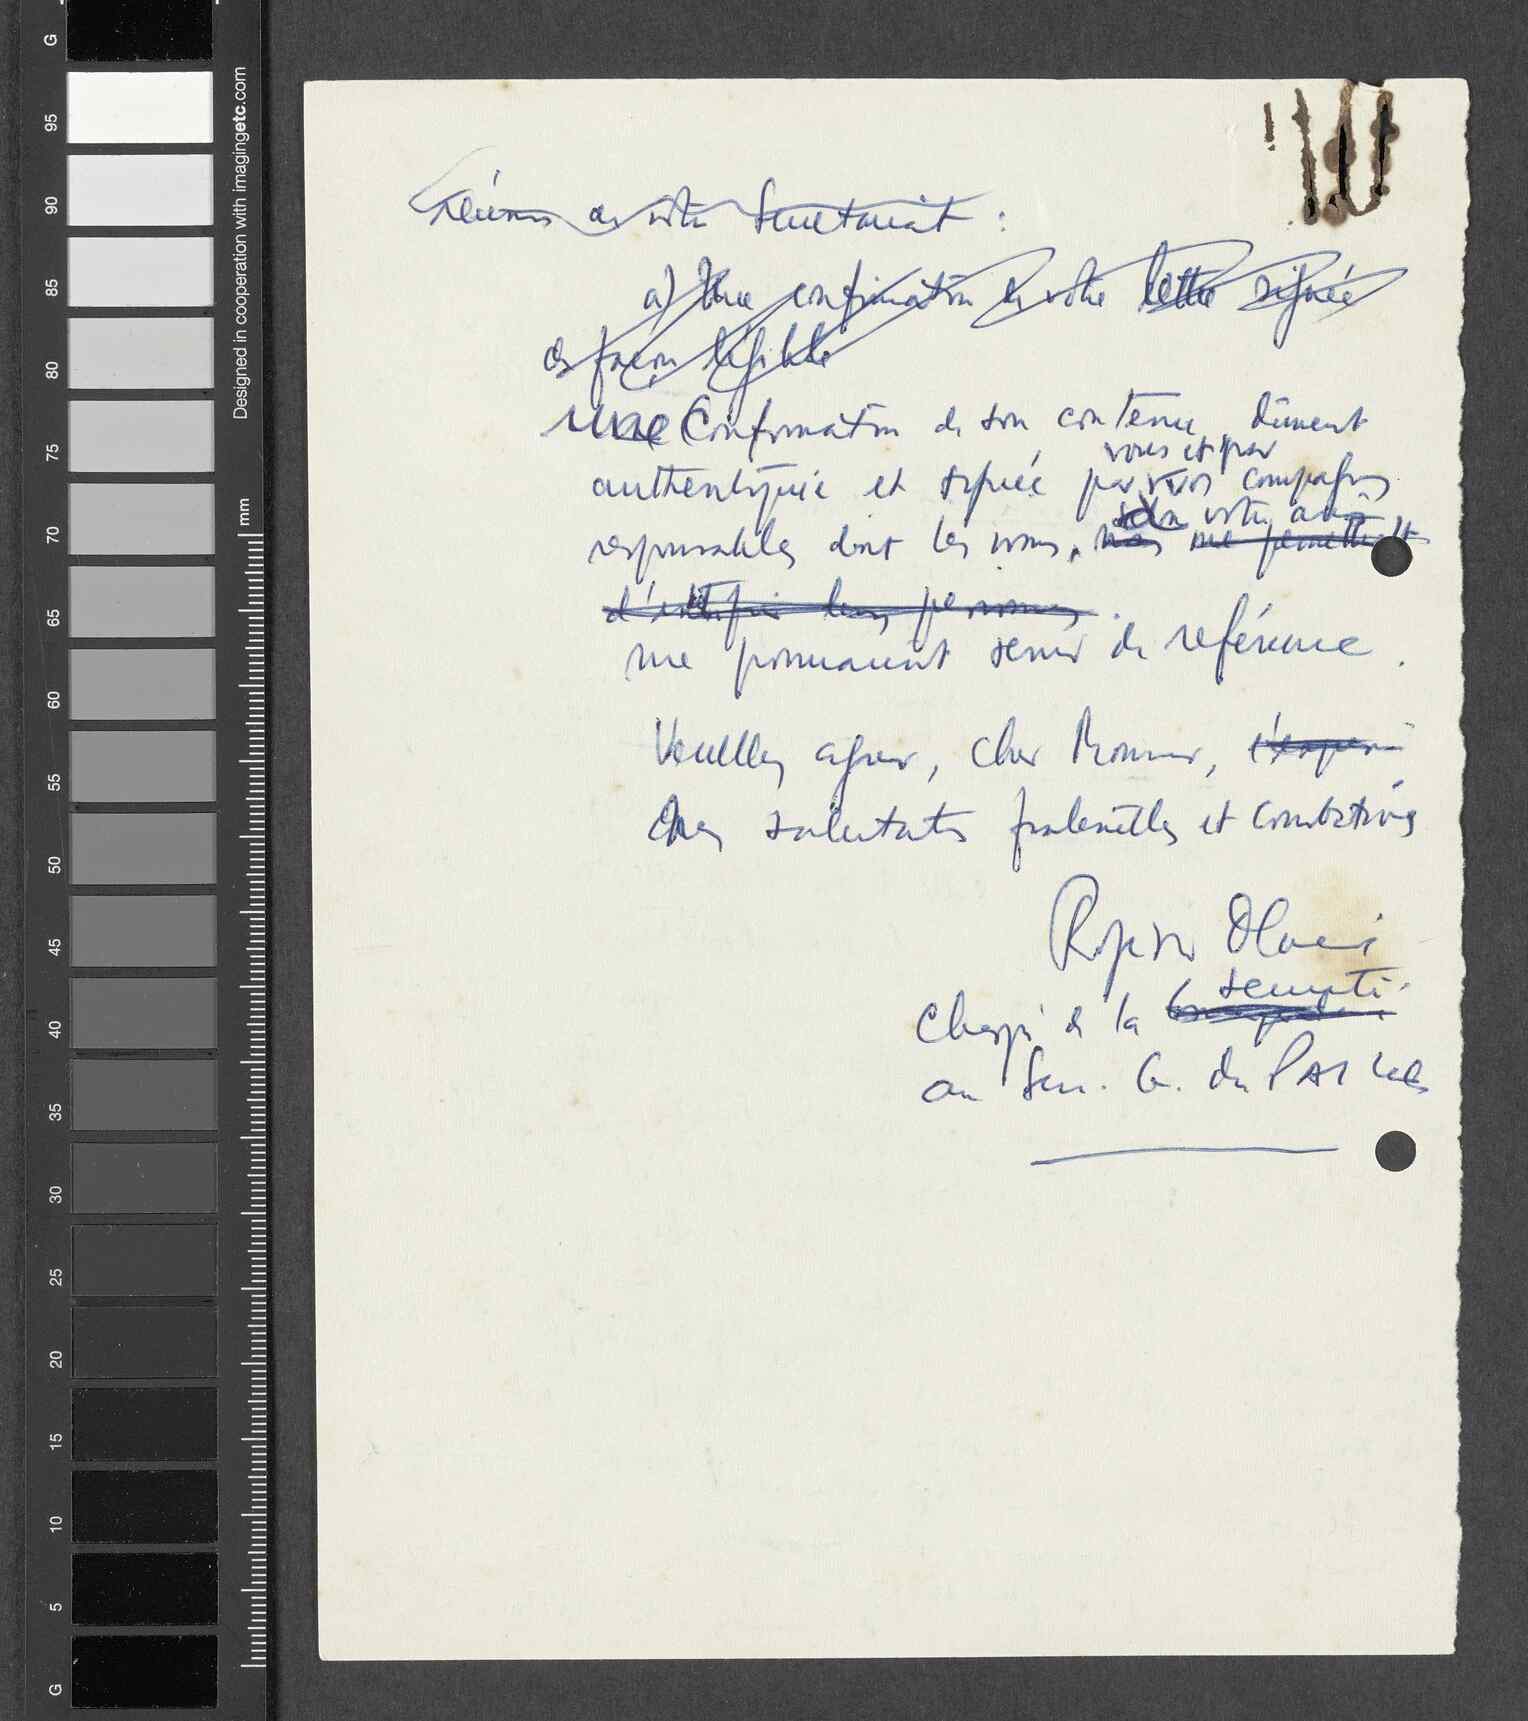 G
95
90
85
80
75
70
65
60
55
50
45
40
35
30
25
20
15
10
5
G
Designed in cooperation with imagingetc.com
mm
votre Secretariat :
a) Une confirmation de votre lettre signée
de façon lisible
une Confirmation de son contenu dûment
vous et par
authentifiée et signée par vos compagnons
selon votre avis
responsables dont les noms, me permettent
d'identifier leurs personnes
me pourraient servir de reférence.
Veuillez agréer, cher Monsieur,
mes salutations fraternelles et combatives
Chargé de la securité
au Secr. G. du PAI